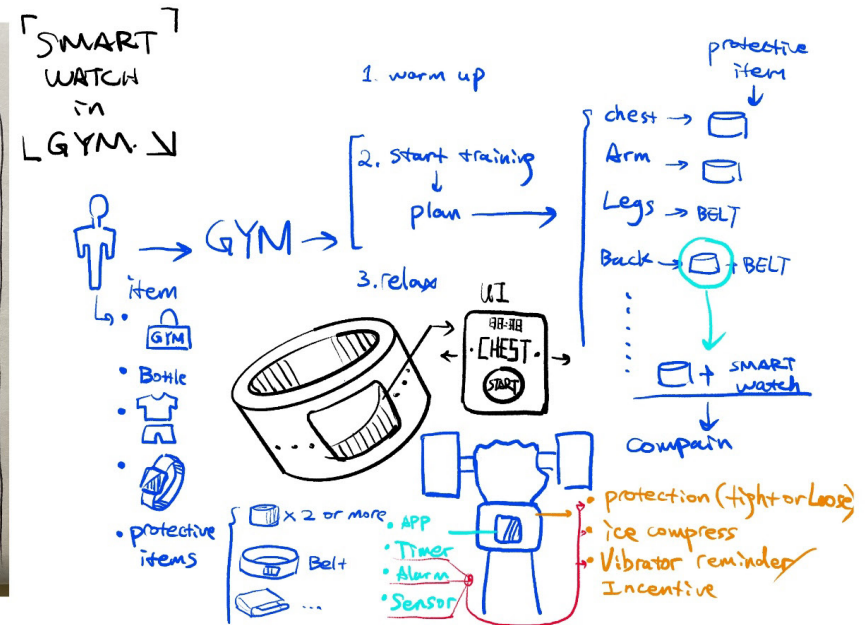 SMART
WATCH
in
GYM.
1. warm up
2. start training
plan
3. relax
GYM
item
GYM
Bottle
protective
items
x 2 or more
Belt
...
UI
88:88
CHEST
START
protective
item
chest
Arm
Legs → BELT
Back → + BELT
+ SMART
watch
Compain
APP
Timer
Alarm
Sensor
protection (tight or Loose)
ice compress
Vibrator reminder/
Incentive